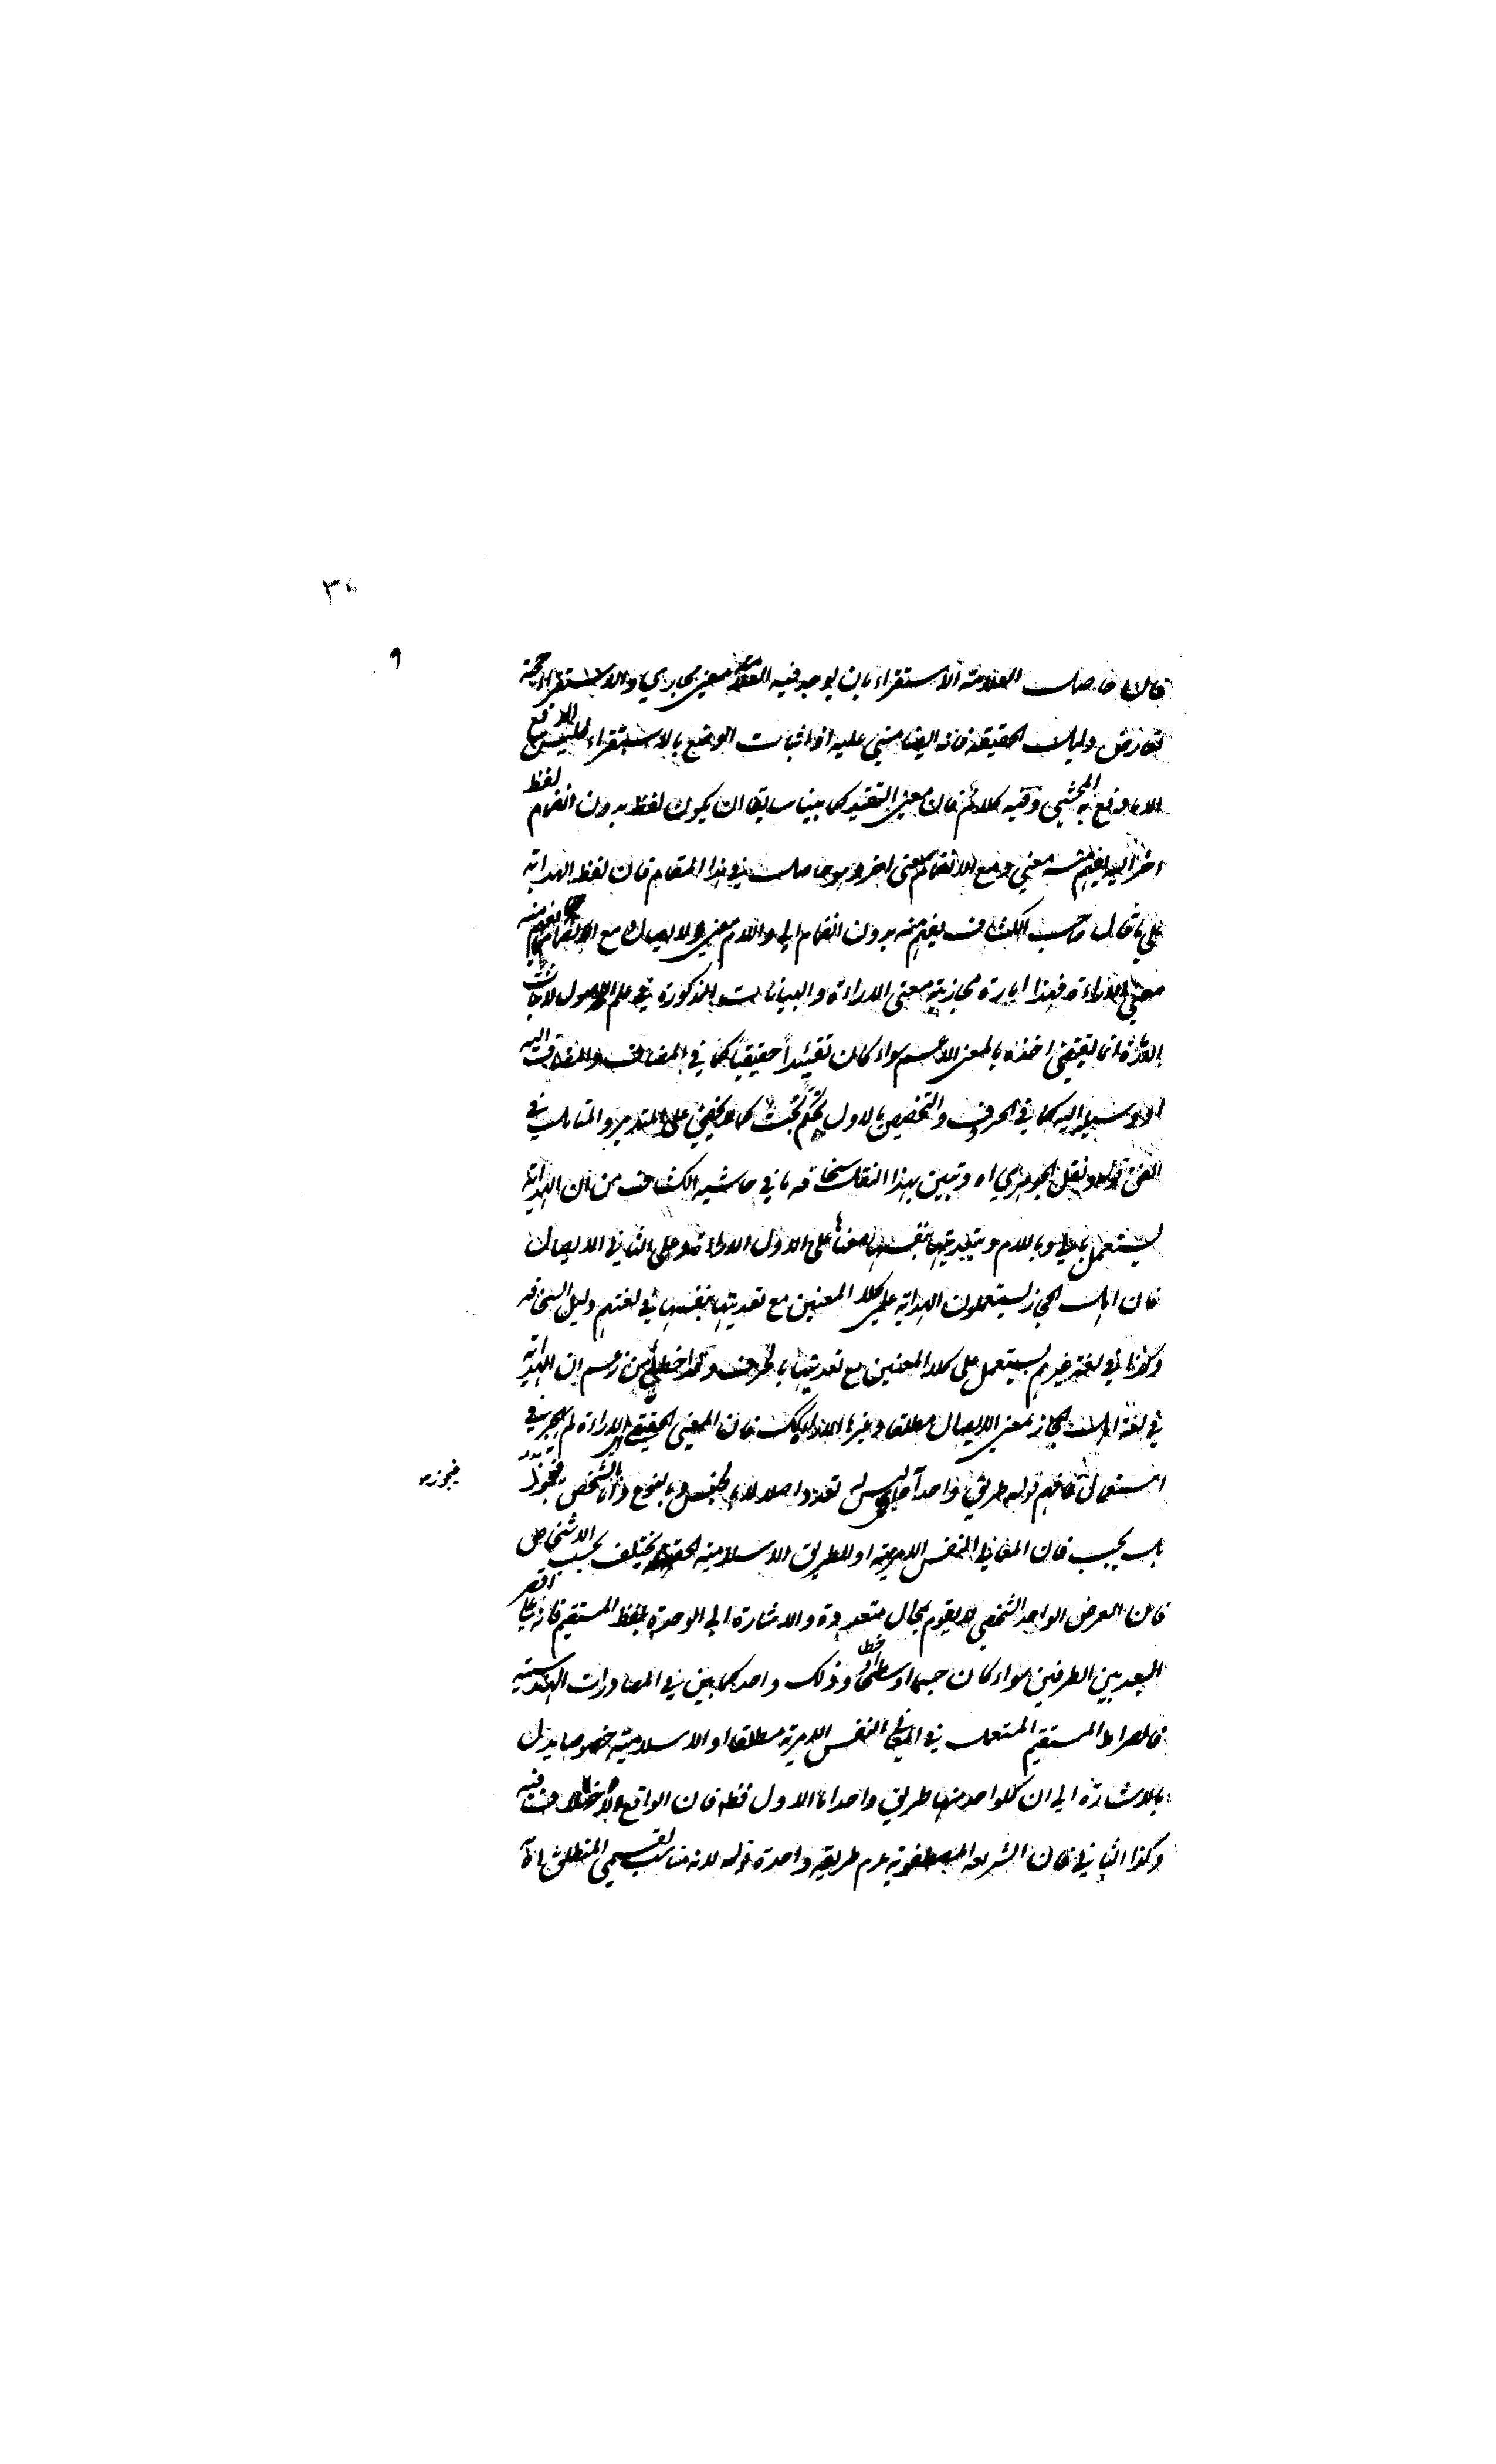 ٣٠
٩
فان حاصل العلامة الاستقراء بان يوجد فيه العلامة معنى مجازي والاستقراء حجة
تعارض دليل الحقيقة فانه ايضا مبني عليه اذ اثبات الوضع بالاستقراء فليس الدفع
الا ما دفع به المحشي وفيه كلام فان معنى التقييد كما بينا سابقا ان يكون لفظ بدون انضمام لفظ
اخر اليه يفهم منه معنى ومع الانضمام معنى اخر وهو حاصل في هذا المقام فان لفظ الهداية
على ما قال صاحب الكشاف يفهم منه بدون انضمام الى واللام معنى الايصال ومع الانضمام يفهم منه
معنى الاراءة فهذا امارة مجازية معنى الاراءة والبيانات المذكورة في علم الاصول لاثبات
الامارة انما يقتضي اخذه بالمعنى الاعم سواء كان تقييدا حقيقيا كما في المضاف والمضاف اليه
او وسيلة اليه كما في الحرف والتخصيص بالاول تحكم بحت كما لا يخفى على المتدبر والمتامل في
الفن قوله ونقل الجوهري اه وتبين بهذا النقل سخافه ما في حاشية الكشاف من ان الهداية
يستعمل بالى وباللام وبتعديتها بنفسها فمعناها على الاول الاراءة وعلى الثاني الايصال
فان اهل الحجاز يستعملون الهداية على كلا المعنين مع تعديتها بنفسها في لغتهم دليل السخافه
وكذا في لغة غيرهم يستعمل على كلا المعنين مع تعديتها بالحرف وقد اخطأ من زعم ان الهداية
في لغة اهل الحجاز بمعنى الايصال مطلقا وغيرها فان المعنى الحقيقي الاراءة لم يهجر في
استعمال فافهم قوله طريق واحد آه ليس تعدد اصلا لا بالجنس ولا بالنوع واما بالشخص فيجوز تعدده
فيجوزه
بل يجب فان المعاني النفس الامرية او الطريق الاسلامية الحقة يختلف بحسب الاشخاص
فان العرض الواحد الشخصي لا يقوم بمحال متعددة والاشارة الى الوحدة بلفظ المستقيم فانه على اقصر
البعد بين الطرفين سواء كان جسما او سطحا او خطا وذلك واحد كما بين في المصادرات الهندسية
فالصراط المستقيم المستعمل في المعاني النفس الامرية مطلقا او الاسلامية خصوصا يدل
بالاشارة الى ان كلواحد منها طريق واحد اما الاول فظ فان الواقع لا اختلاف فيه
وكذا الثاني فان الشريعة المصطفوية عم طريقه واحدة قوله لانه مناسب لقسمي المنطق آه